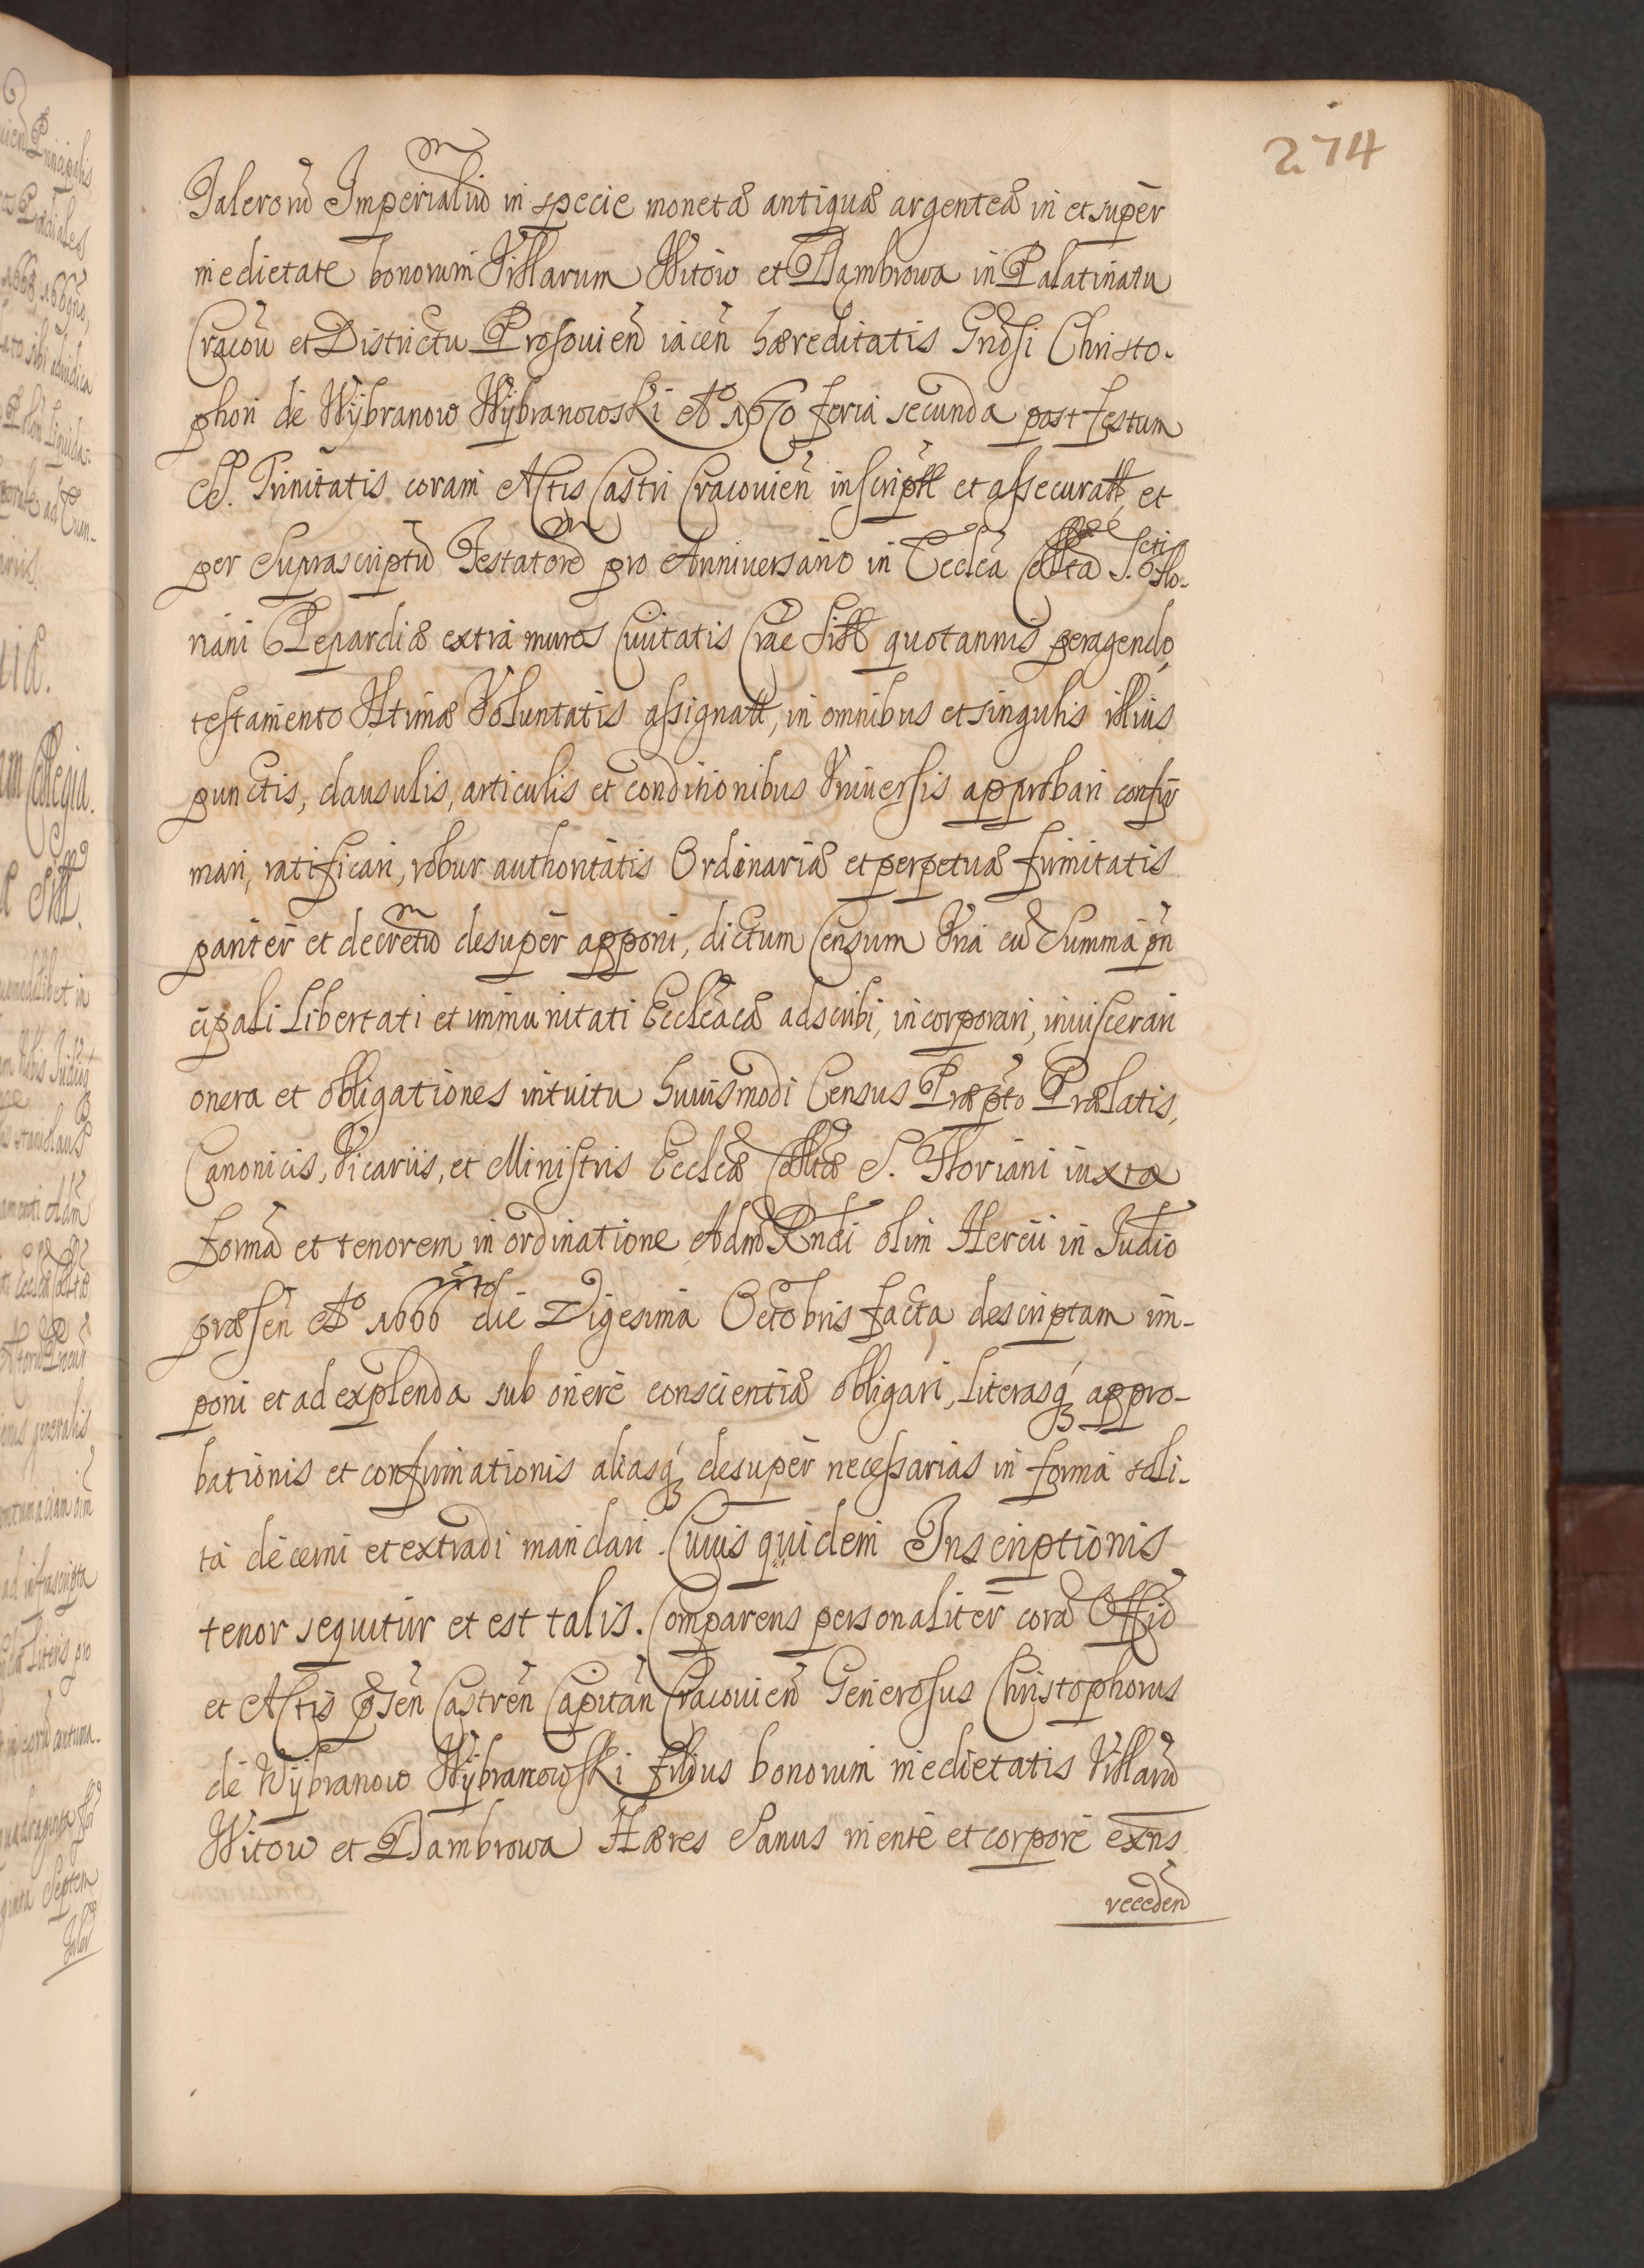 274
Talerorũ Imperialiũ in specie monetæ antiquæ argenteæ in et super
medietate bonorum Villarum Witow et Dąmbrowa in Palatinatu
Cracoũ et Districtu Prosouieñ iaceñ hæreditatis Gnosi Christo-
phori de Wÿbranow Wÿbranowski Aº 1670 feria secunda post festum
SS. Trinitatis coram Actis Castri Cracouieñ inscriptt et assecuratt, et
per Suprascriptũ Testatorẽ pro Anniuersario in Eccleã Colltã S. Flo-
riani Clepardiæ extra muros Ciuitatis Crac Sitt quotannis peragendo,
testamento Vltimæ Voluntatis assignatt, in omnibus et singulis illius
punctis, clausulis, articulis et conditionibus Vniuersis approbari confir
mari, ratificari, robur authoritatis Ordinariæ et perpetuæ firmitatis
pariter et decretũ desuper apponi, dictum Censum Vna cũ Summa prin
cipali Libertati et immunitati Eccleãcæ adscribi, incorporari, inuiscerari
onera et obligationes intuitu huiusmodi Census Præpto Prælatis,
Canonicis, Vicariis, et Ministris Eccleæ Colltæ S. Floriani iuxta
formã et tenorem in ordinatione Adm Rndi olim Hercii in Judio
præseñ Aº 1666 die Vigesima Octobris facta descriptam im-
poni et ad explenda sub onere conscientiæ obligari, Literasq́ appro-
bationis et confirmationis aliasq́ desuper necessarias in forma soli-
ta decerni et extradi mandari. Cuius quidem Inscriptionis
tenor sequitur et est talis. Comparens personaliter corã Offið
et Actis pseñ Castreñ Capitañ Cracouieñ Generosus Christophorus
de Wÿbranow Wÿbranowski filius bonorum medietatis Villarũ
Witow et Dambrowa Hæres Sanus mente et corpore exñs
recedeñ